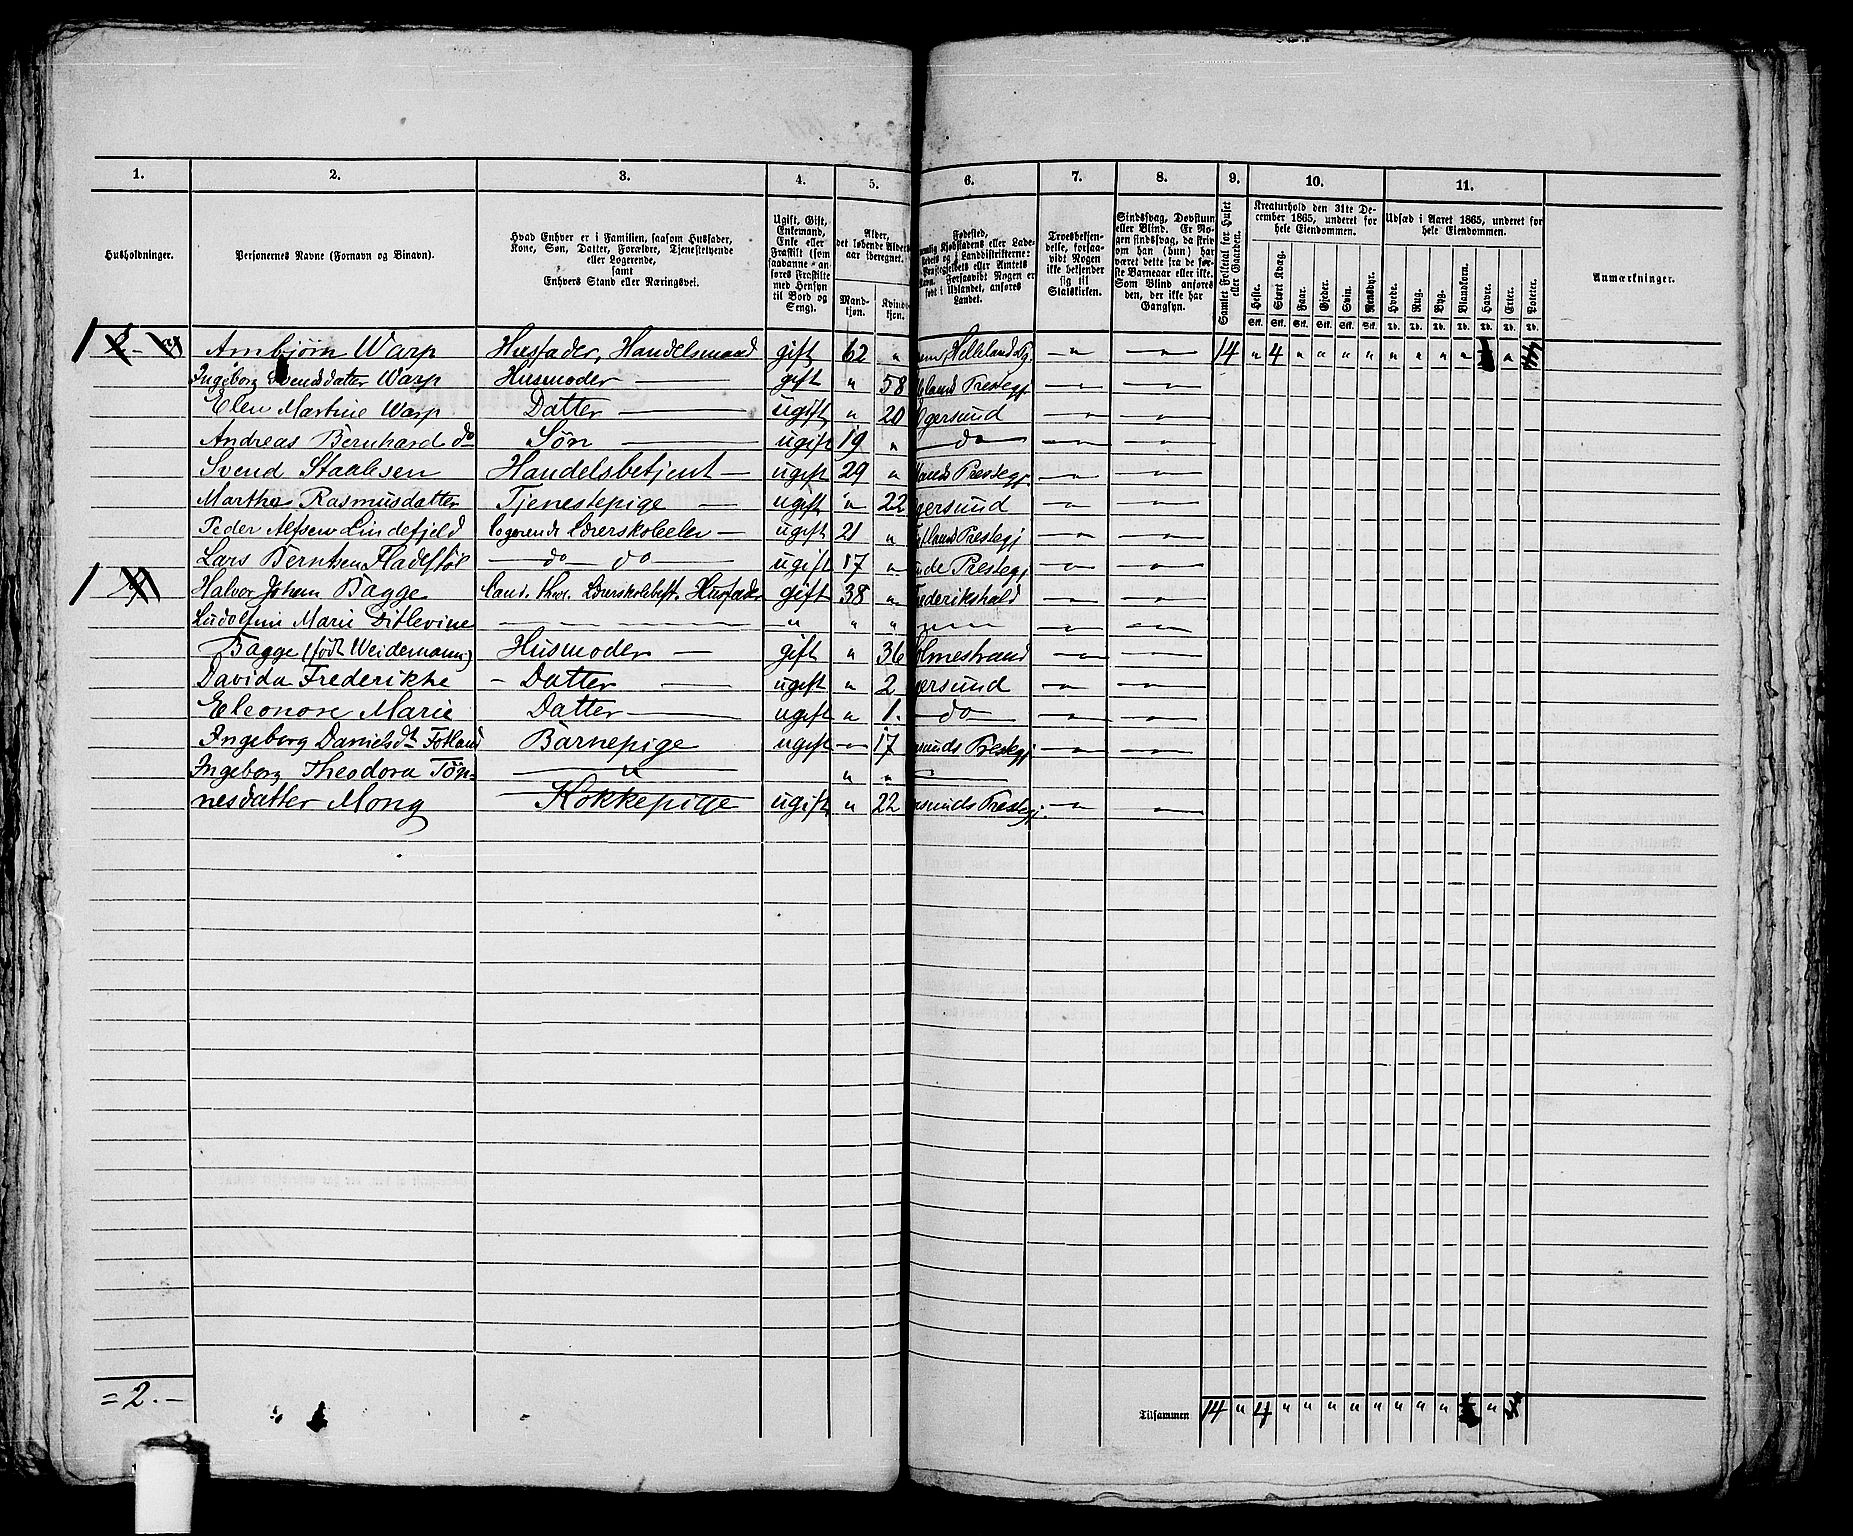 1. 2. 3. 4. 5. 6. 7. 8. 9. 10. 11.
Husholdninger.
Personernes Navne (Fornavn og Binavn).
Hvad Enhver er i Familien, saasom Husfader,
Kone, Søn, Datter, Forældre, Tjenestetyende
eller Logerende,
samt
Enhvers Stand eller Næringsvei.
Ugift, Gift,
Enkemand,
Enke eller
Fraskilt (som
saadanne an-
føres Fraskilte
med Hensyn
til Bord og
Seng).
Alder,
det løbende Alders-
aar iberegnet.
Mand-
kjøn.
Kvind-
kjøn.
Fødested,
Kjøbstadens eller Lade-
og i Landdistrikterne:
eller Amtets
Navn. Forsaavidt Nogen er
født i Udlandet, anføres
Landet.
Troesbekjen-
delse, forsaa-
vidt Nogen
ikke bekjender
sig til
Statskirken.
Sindssvag, Døvstum
eller Blind. Er No-
gen sindssvag, da skriv
om han (hun) har
været dette fra de før-
ste Barneaar eller ikke.
Som Blind anføres
den, der ikke har
Gangsyn.
Samlet Folketal for Huset
eller Gaarden.
Kreaturhold den 31te De-
cember 1865, underet for
hele Eiendommen.
Heste. Stort Kvæg. Faar. Gjeder. Svin. Rensdyr.
Stk. Stk. Stk. Stk. Stk. Stk.
Udsæd i Aaret 1865, underet for
hele Eiendommen.
Hvede. Rug. Byg. Blandkorn. Havre. Erter. Poteter.
Td. Td. Td. Td. Td. Td. Td.
Anmærkninger.
1 Arnbjørn Warp Husfader, Handelsmand gift 62 " Helleland Pg — " — — " — 14 " 4 " " " " " " " " "
Ingeborg Svensdatter Warp Husmoder — gift " 58 lands Prestegj — " — — " —
Elen Martine Warp Datter — ugift " 20 gersund — " — — " —
Andreas Bernhard do Søn — ugift 19 " — do — — " — — " —
Svend Staalesen Handelsbetjent — ugift 29 " lands Prestegj — " — — " —
Marthe Rasmusdatter Tjenestepige — ugift " 22 gersund — " — — " —
Peder Alfsen Lindefjeld Logerende Lærerskoleelev — ugift 21 " lands Prestegj — " — — " —
Lars Berntsen Fladstøl — do do — ugift 17 " unde Prestegj — " — — " —
1 Halvor Johan Bagge Cand. theol. Lærerskolebest. Husfader gift 38 " Frederikshald — " — — " —
Ludolfine Marie Ditlevine — — — — — " " " — " — — " —
Bagge (født Weidemann) Husmoder — gift " 36 olmestrand — " — — " —
Davida Frederikke - Datter — ugift " 2 gersund — " — — " —
Eleonore Marie Datter — ugift " 1. — do — — " — — " —
Ingeborg Danielsdt Fotland Barnepige ugift — 17 rsunds Prestegj — " — — " —
Ingeborg Theodora Tøn- — " — " " —
nesdatter Mong — Kokkepige ugift " 22 rsunds Prestegj. — " — — " —
= 2. —
Tilsammen 14 " 4 " " " " " " " "